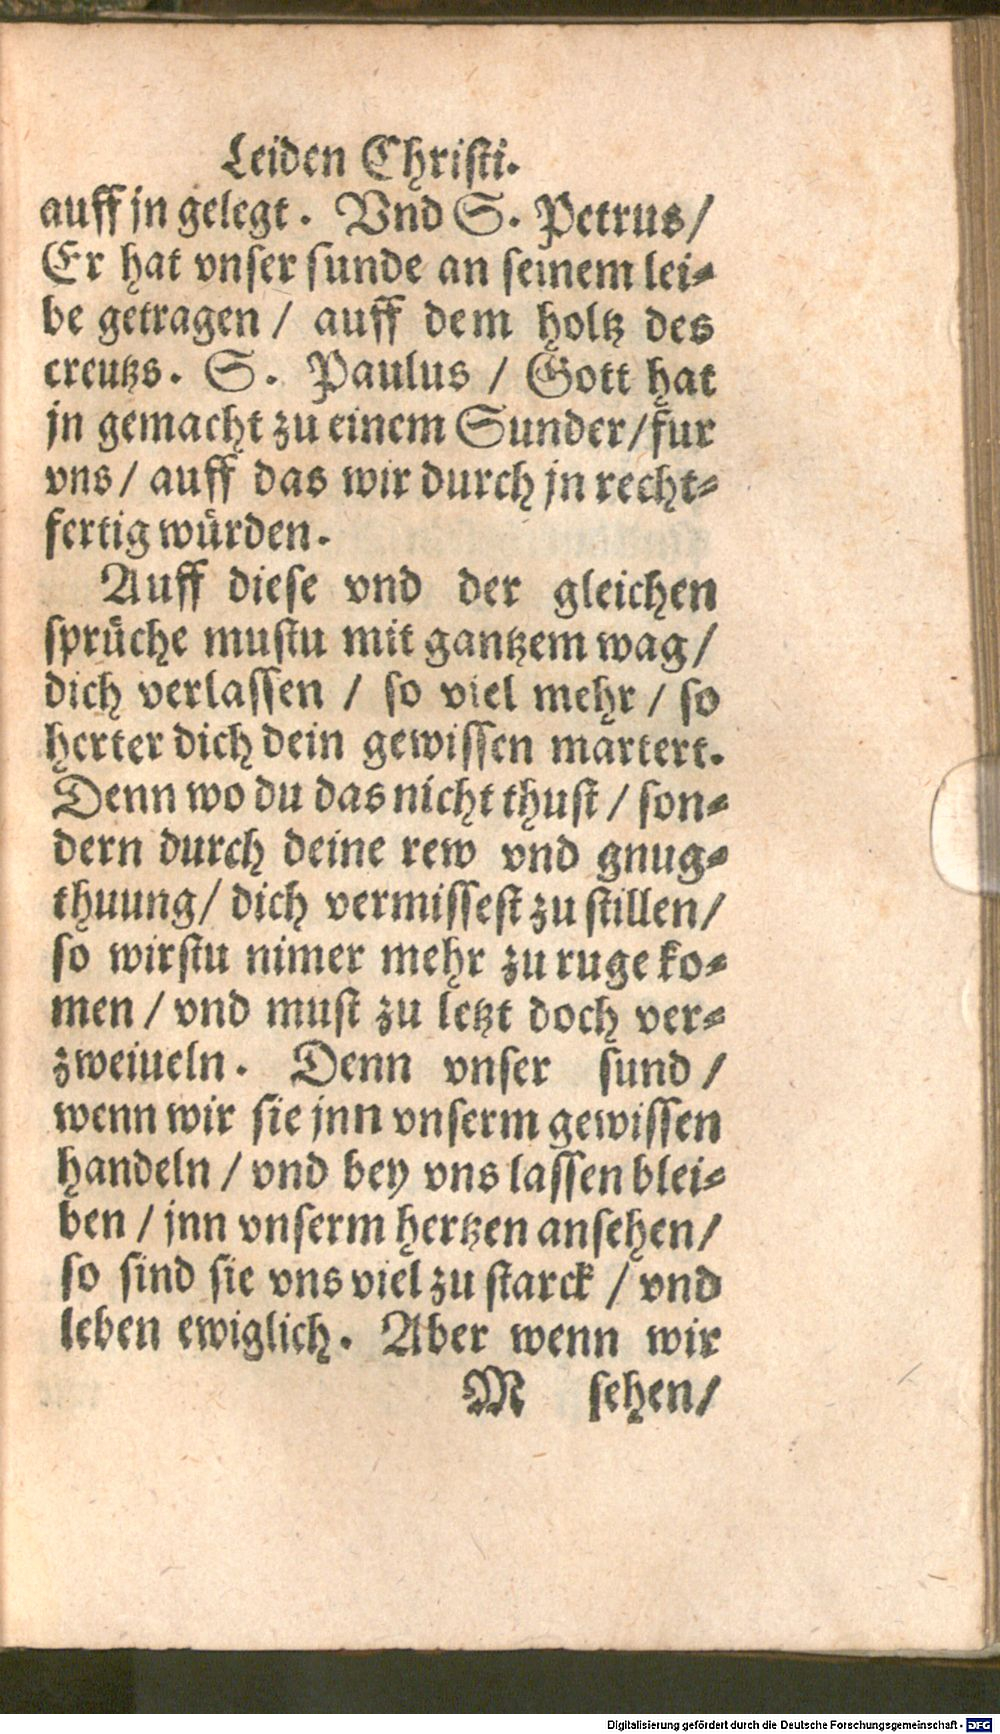 Leiden Christi.
auff jn gelegt. Vnd S. Petrus/
Er hat vnser sunde an seinem lei⸗
be getragen / auff dem holtz des
creutzs. S. Paulus / Gott hat
jn gemacht zu einem Sunder/fur
vns / auff das wir durch jn recht⸗
fertig würden.
Auff diese vnd der gleichen
sprüche mustu mit gantzem wag/
dich verlassen / so viel mehr / so
herter dich dein gewissen martert.
Denn wo du das nicht thust / son⸗
dern durch deine rew vnd gnug⸗
thuung/ dich vermissest zu stillen/
so wirstu nimer mehr zu ruge ko⸗
men / vnd must zu letzt doch ver⸗
zweiueln. Denn vnser sund /
wenn wir sie jnn vnserm gewissen
handeln / vnd bey vns lassen blei⸗
ben / jnn vnserm hertzen ansehen/
so sind sie vns viel zu starck / vnd
leben ewiglich. Aber wenn wir
M sehen/
Digitalisierung gefördert durch die Deutsche Forschungsgemeinschaft - DFG